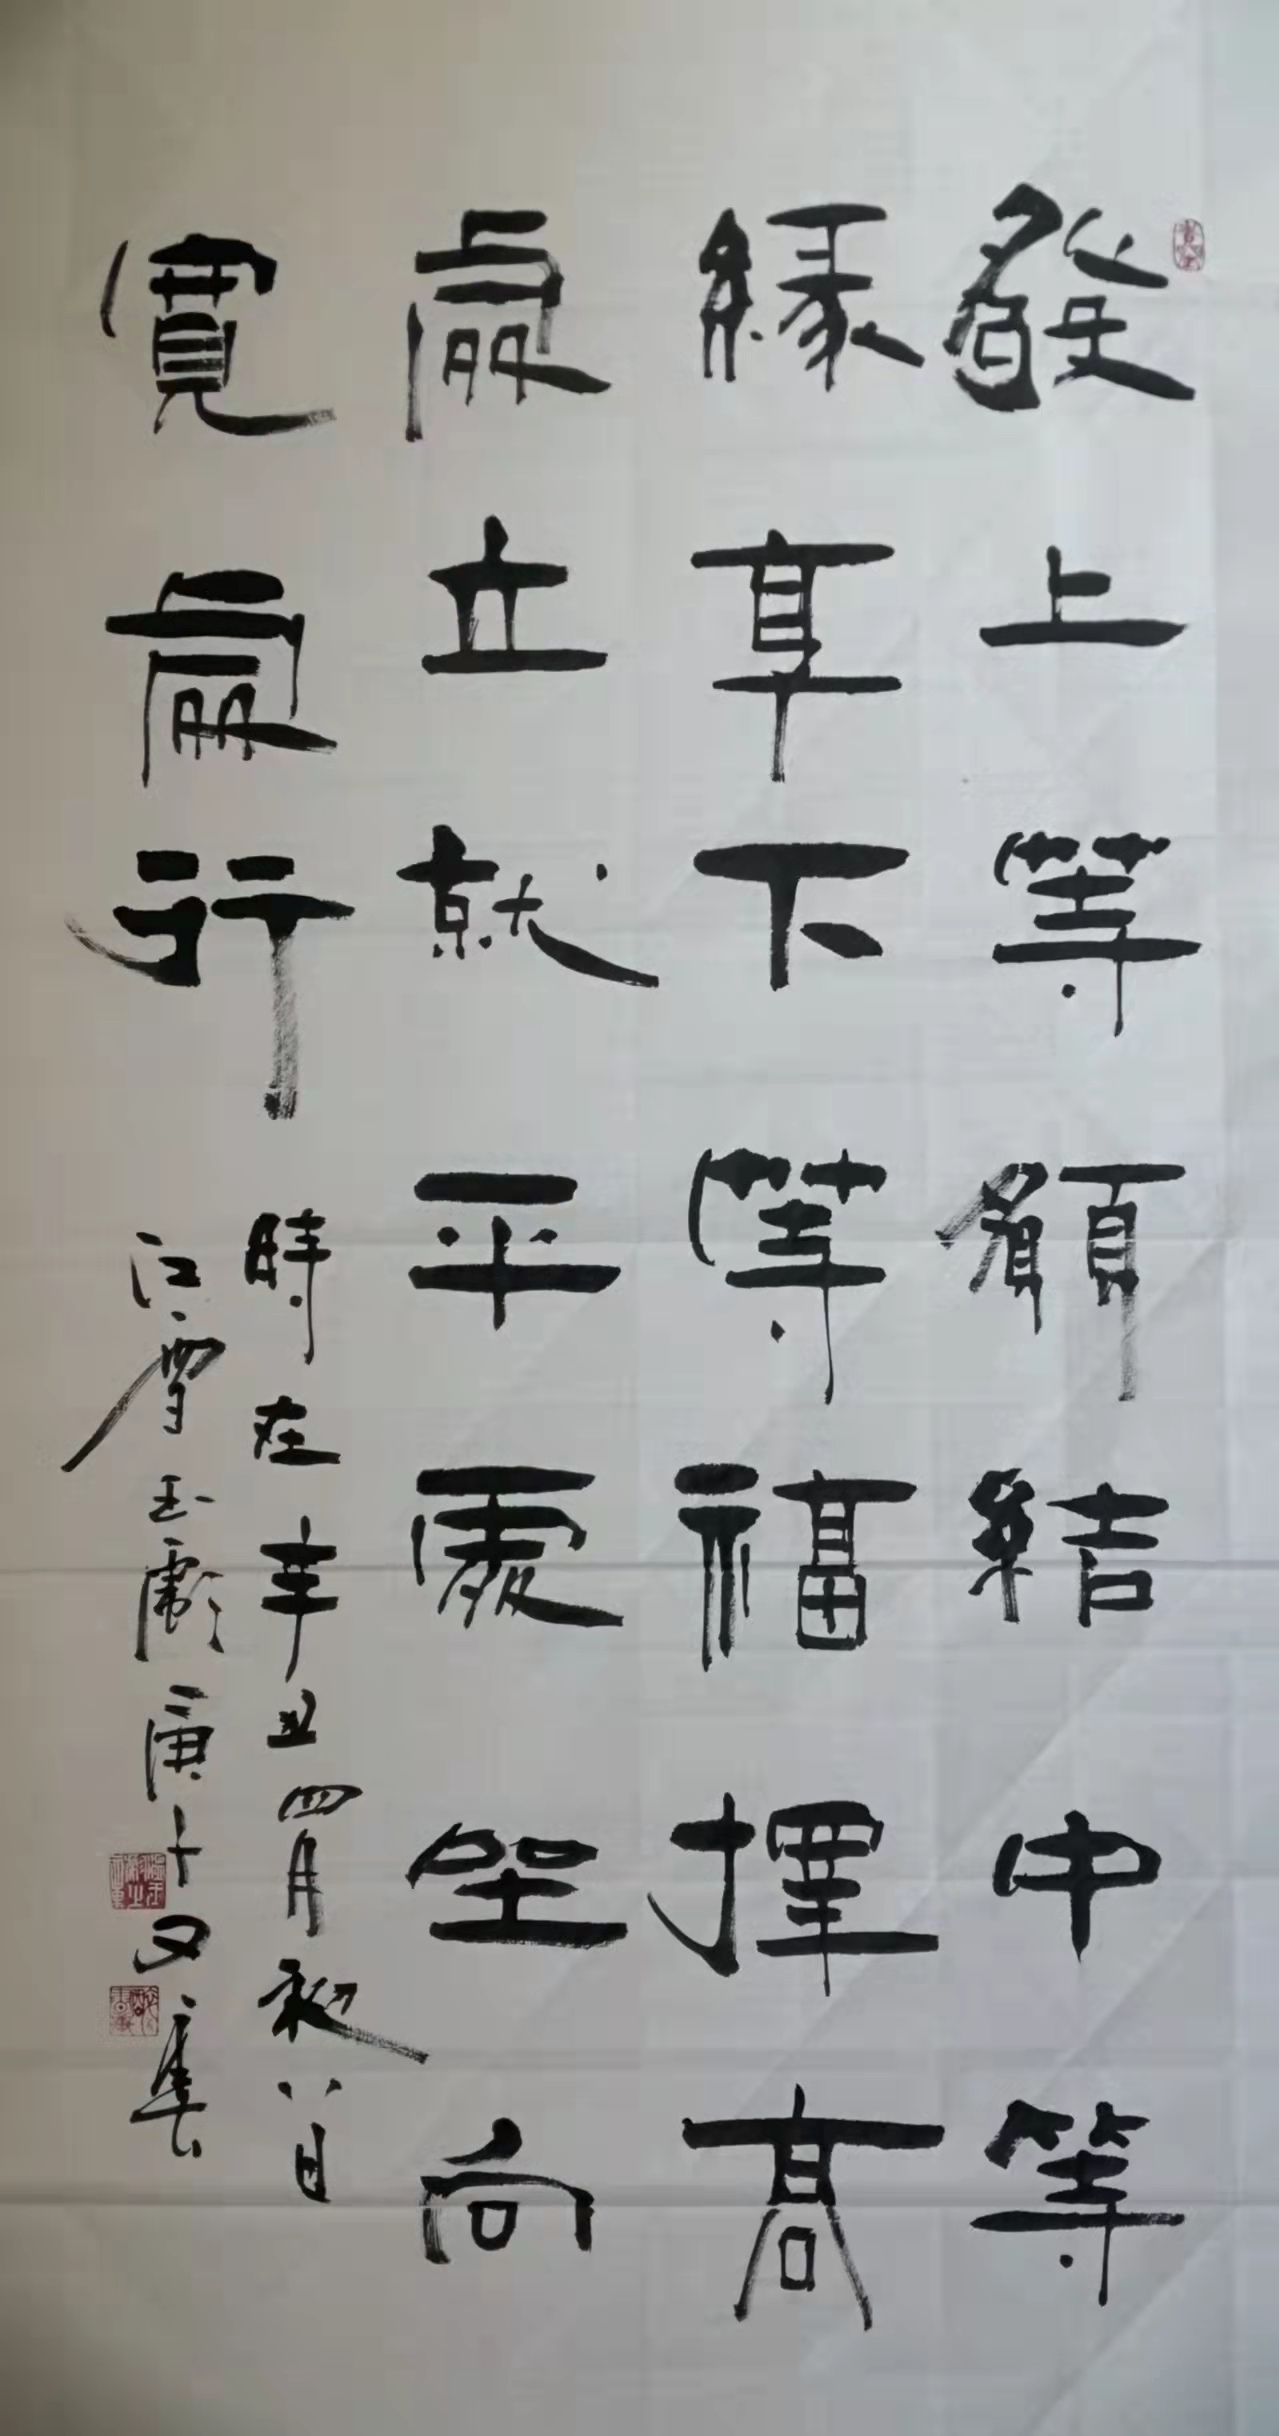 發上等願結中等
緣享下等福擇高
處立就平處坐向
寬處行
時在辛丑四月初八日
江寧